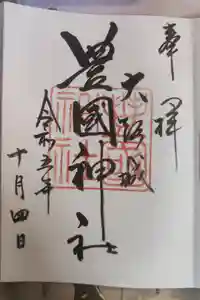 奉祥
大阪城
豊國神社
令和五年
十月四日